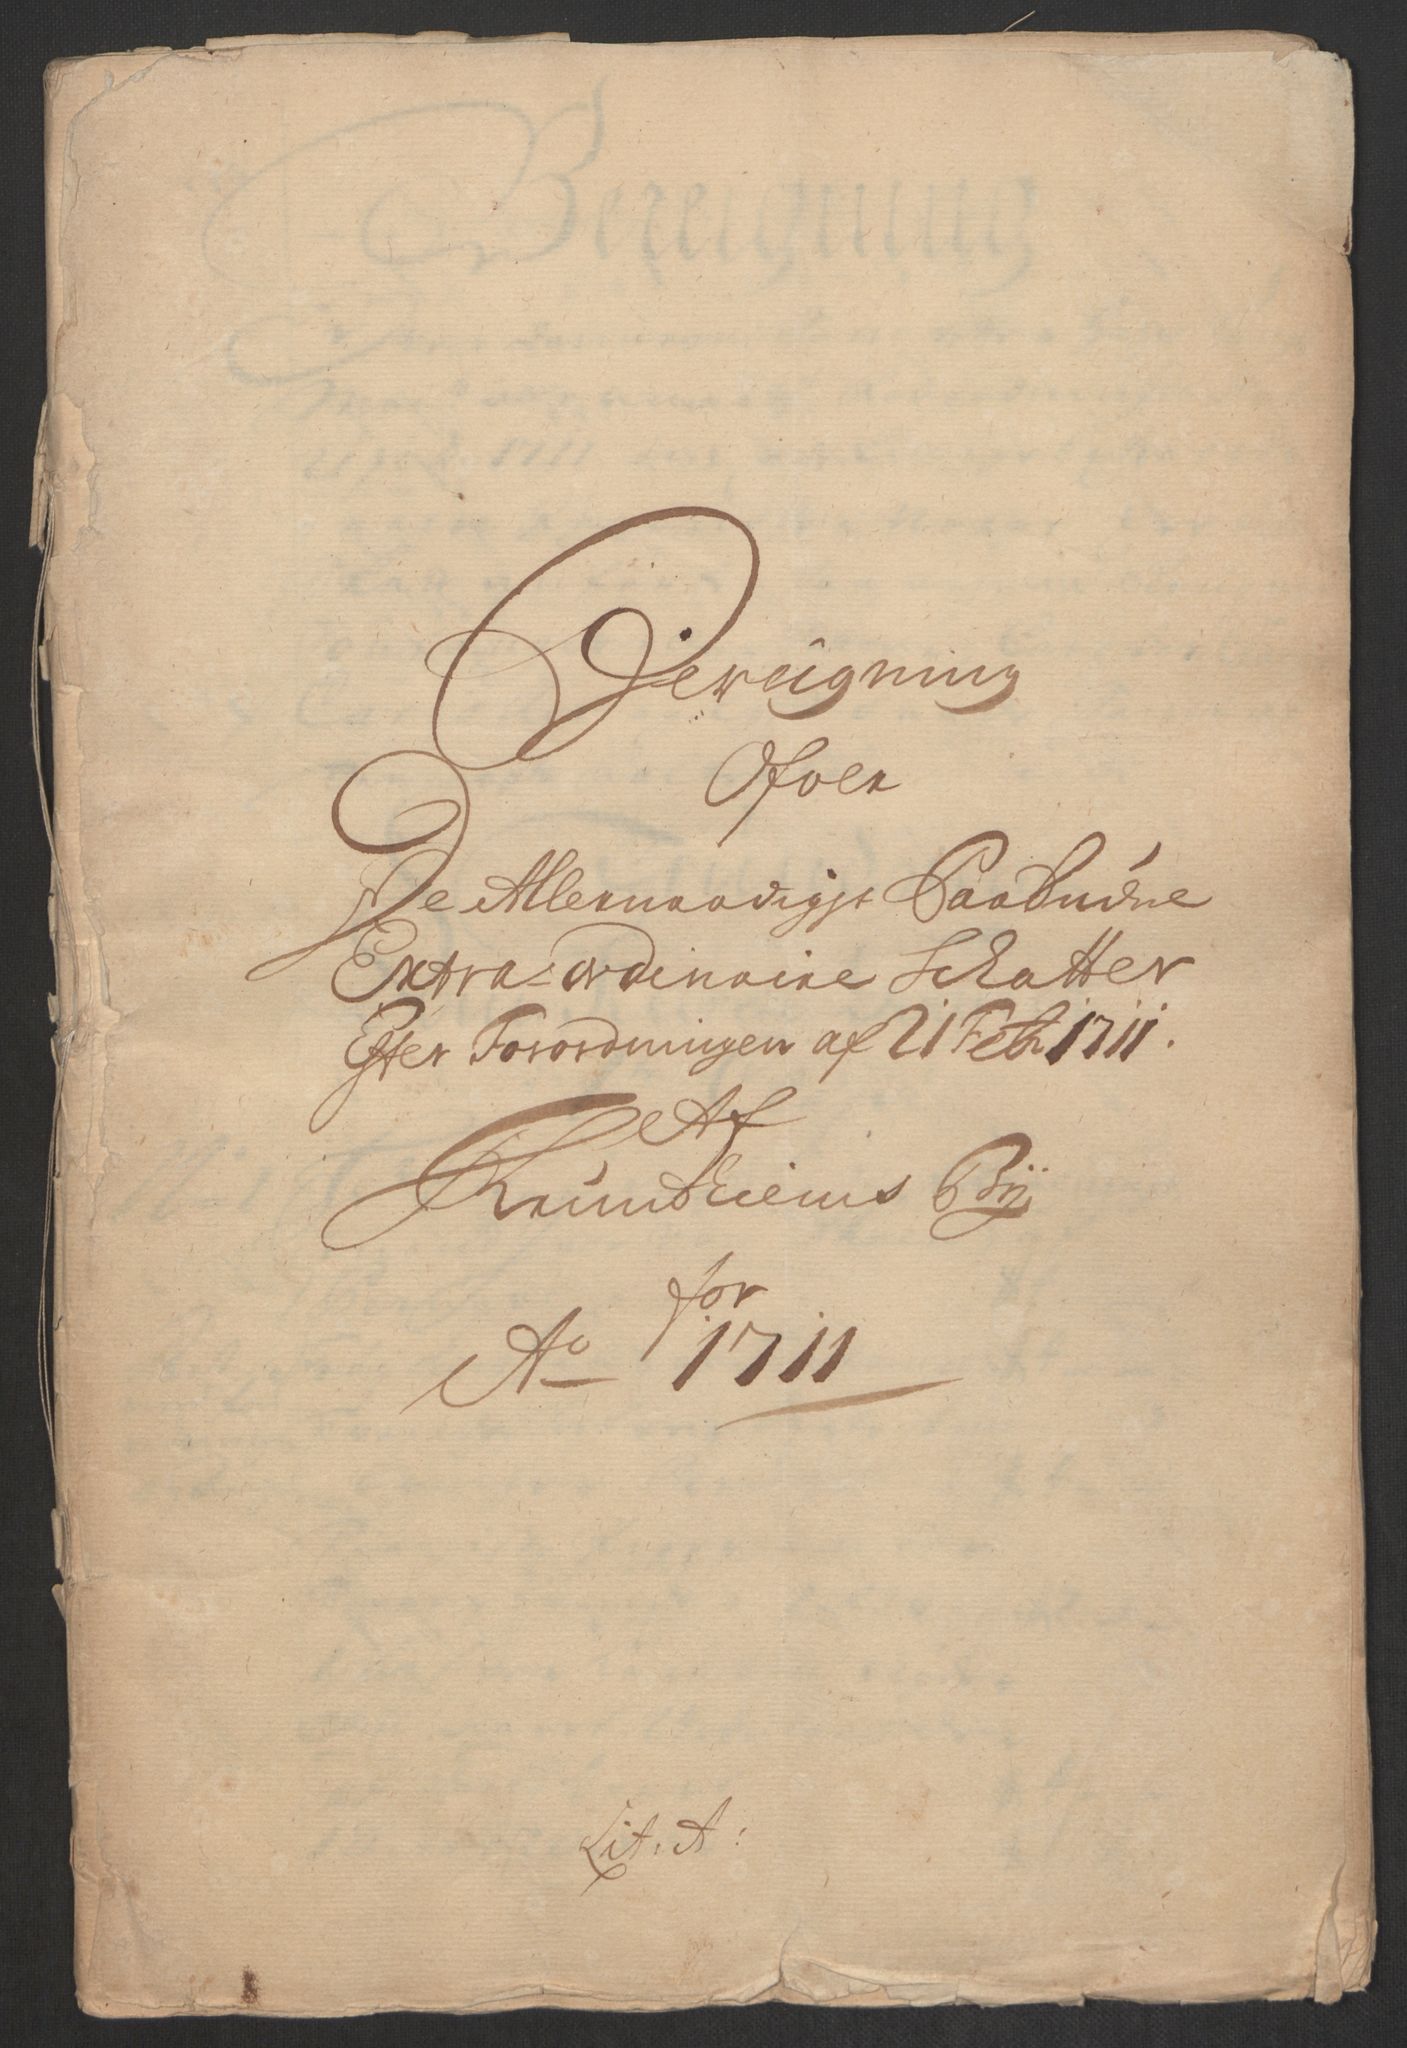 Bereigning
Ofver
De Allernaadigst Paabudne
Extra-ordinaire Schatter
Efter Forordningen af 21 Feb: 1711.
Af
Trundhiems Bÿe
for
Ao 1711
Lit: A: